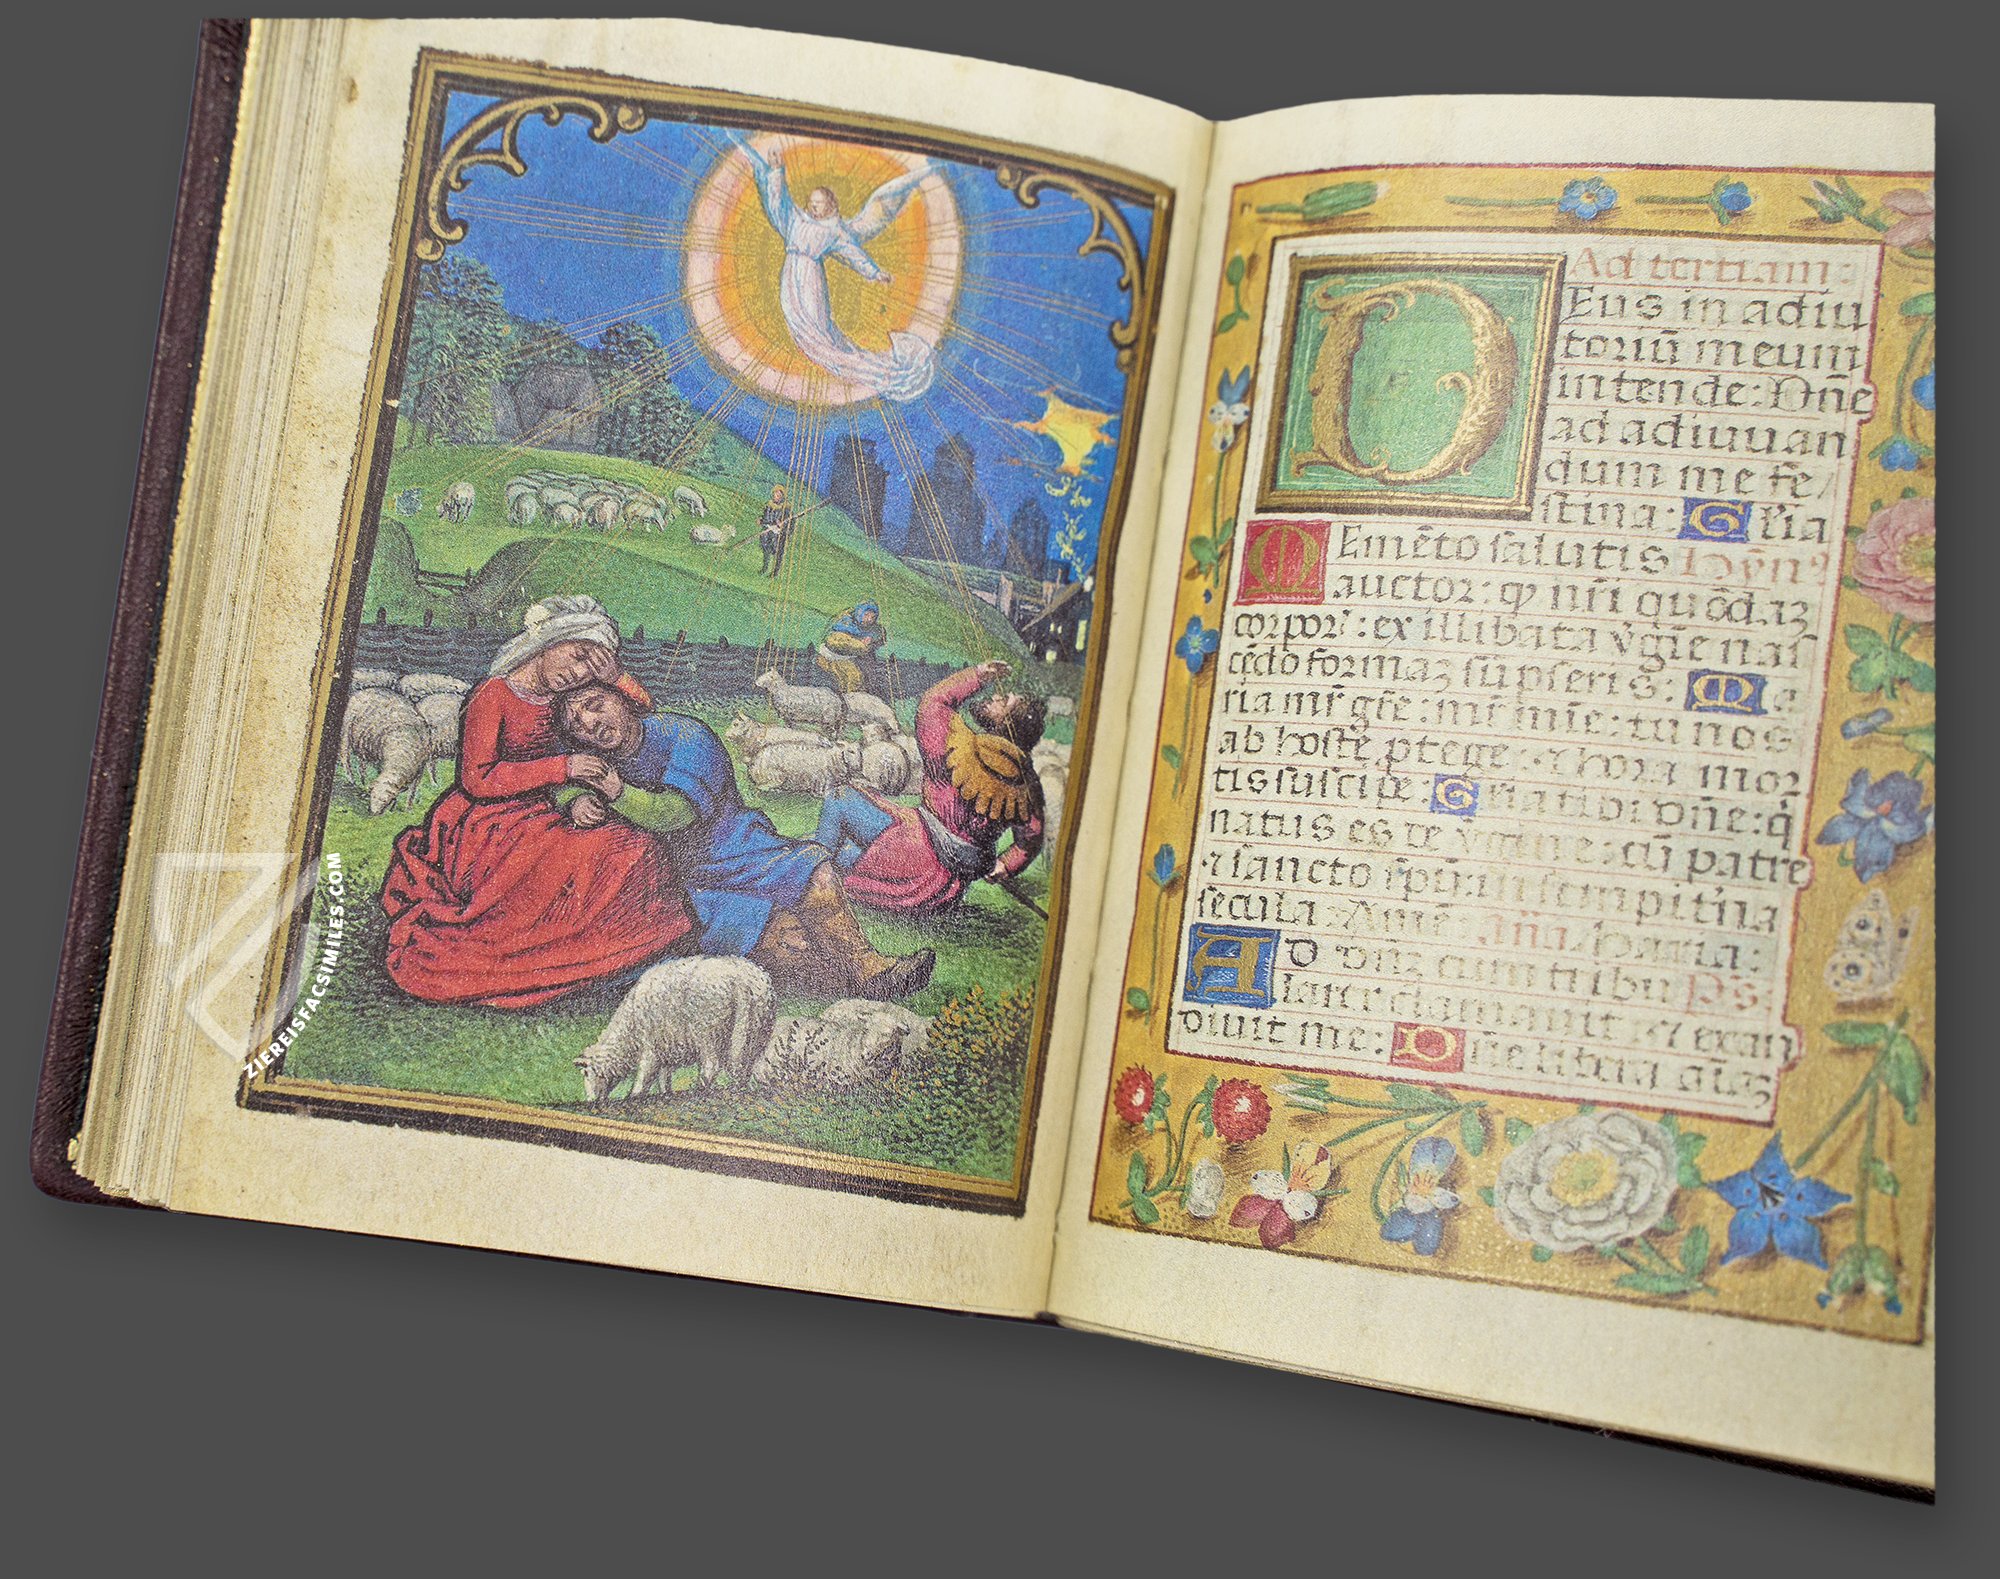 ZIEREISFACSIMILES.COM
Ad tertiam:
DEus in adiu
toriū meum
intende: Dn̄e
ad adiuuan
dum me fe/
stina: Gl'ria
MEmēto salutis Hym̄
auctor: qꝫ nr̄i quōdaꝫ
corpor': ex illibata v̄gīe nas
cēdo formaꝫ sūpseris: Ma
ria mr̄ gr̄e: mr̄ mīe: tu nos
ab hoste ptege: ⁊ hora mor
tis suscipe: Gl'ria tibi dn̄e: q̇
natus es de v̄gine: cū patre
⁊ sancto sp̄ū: in sempit'na
secula: Amē: Añā: Maria:
AD dn̄ꝫ cum tribu Ps:
larer clamaui: ⁊ exau
diuit me: Dn̄e libera aīaꝫ